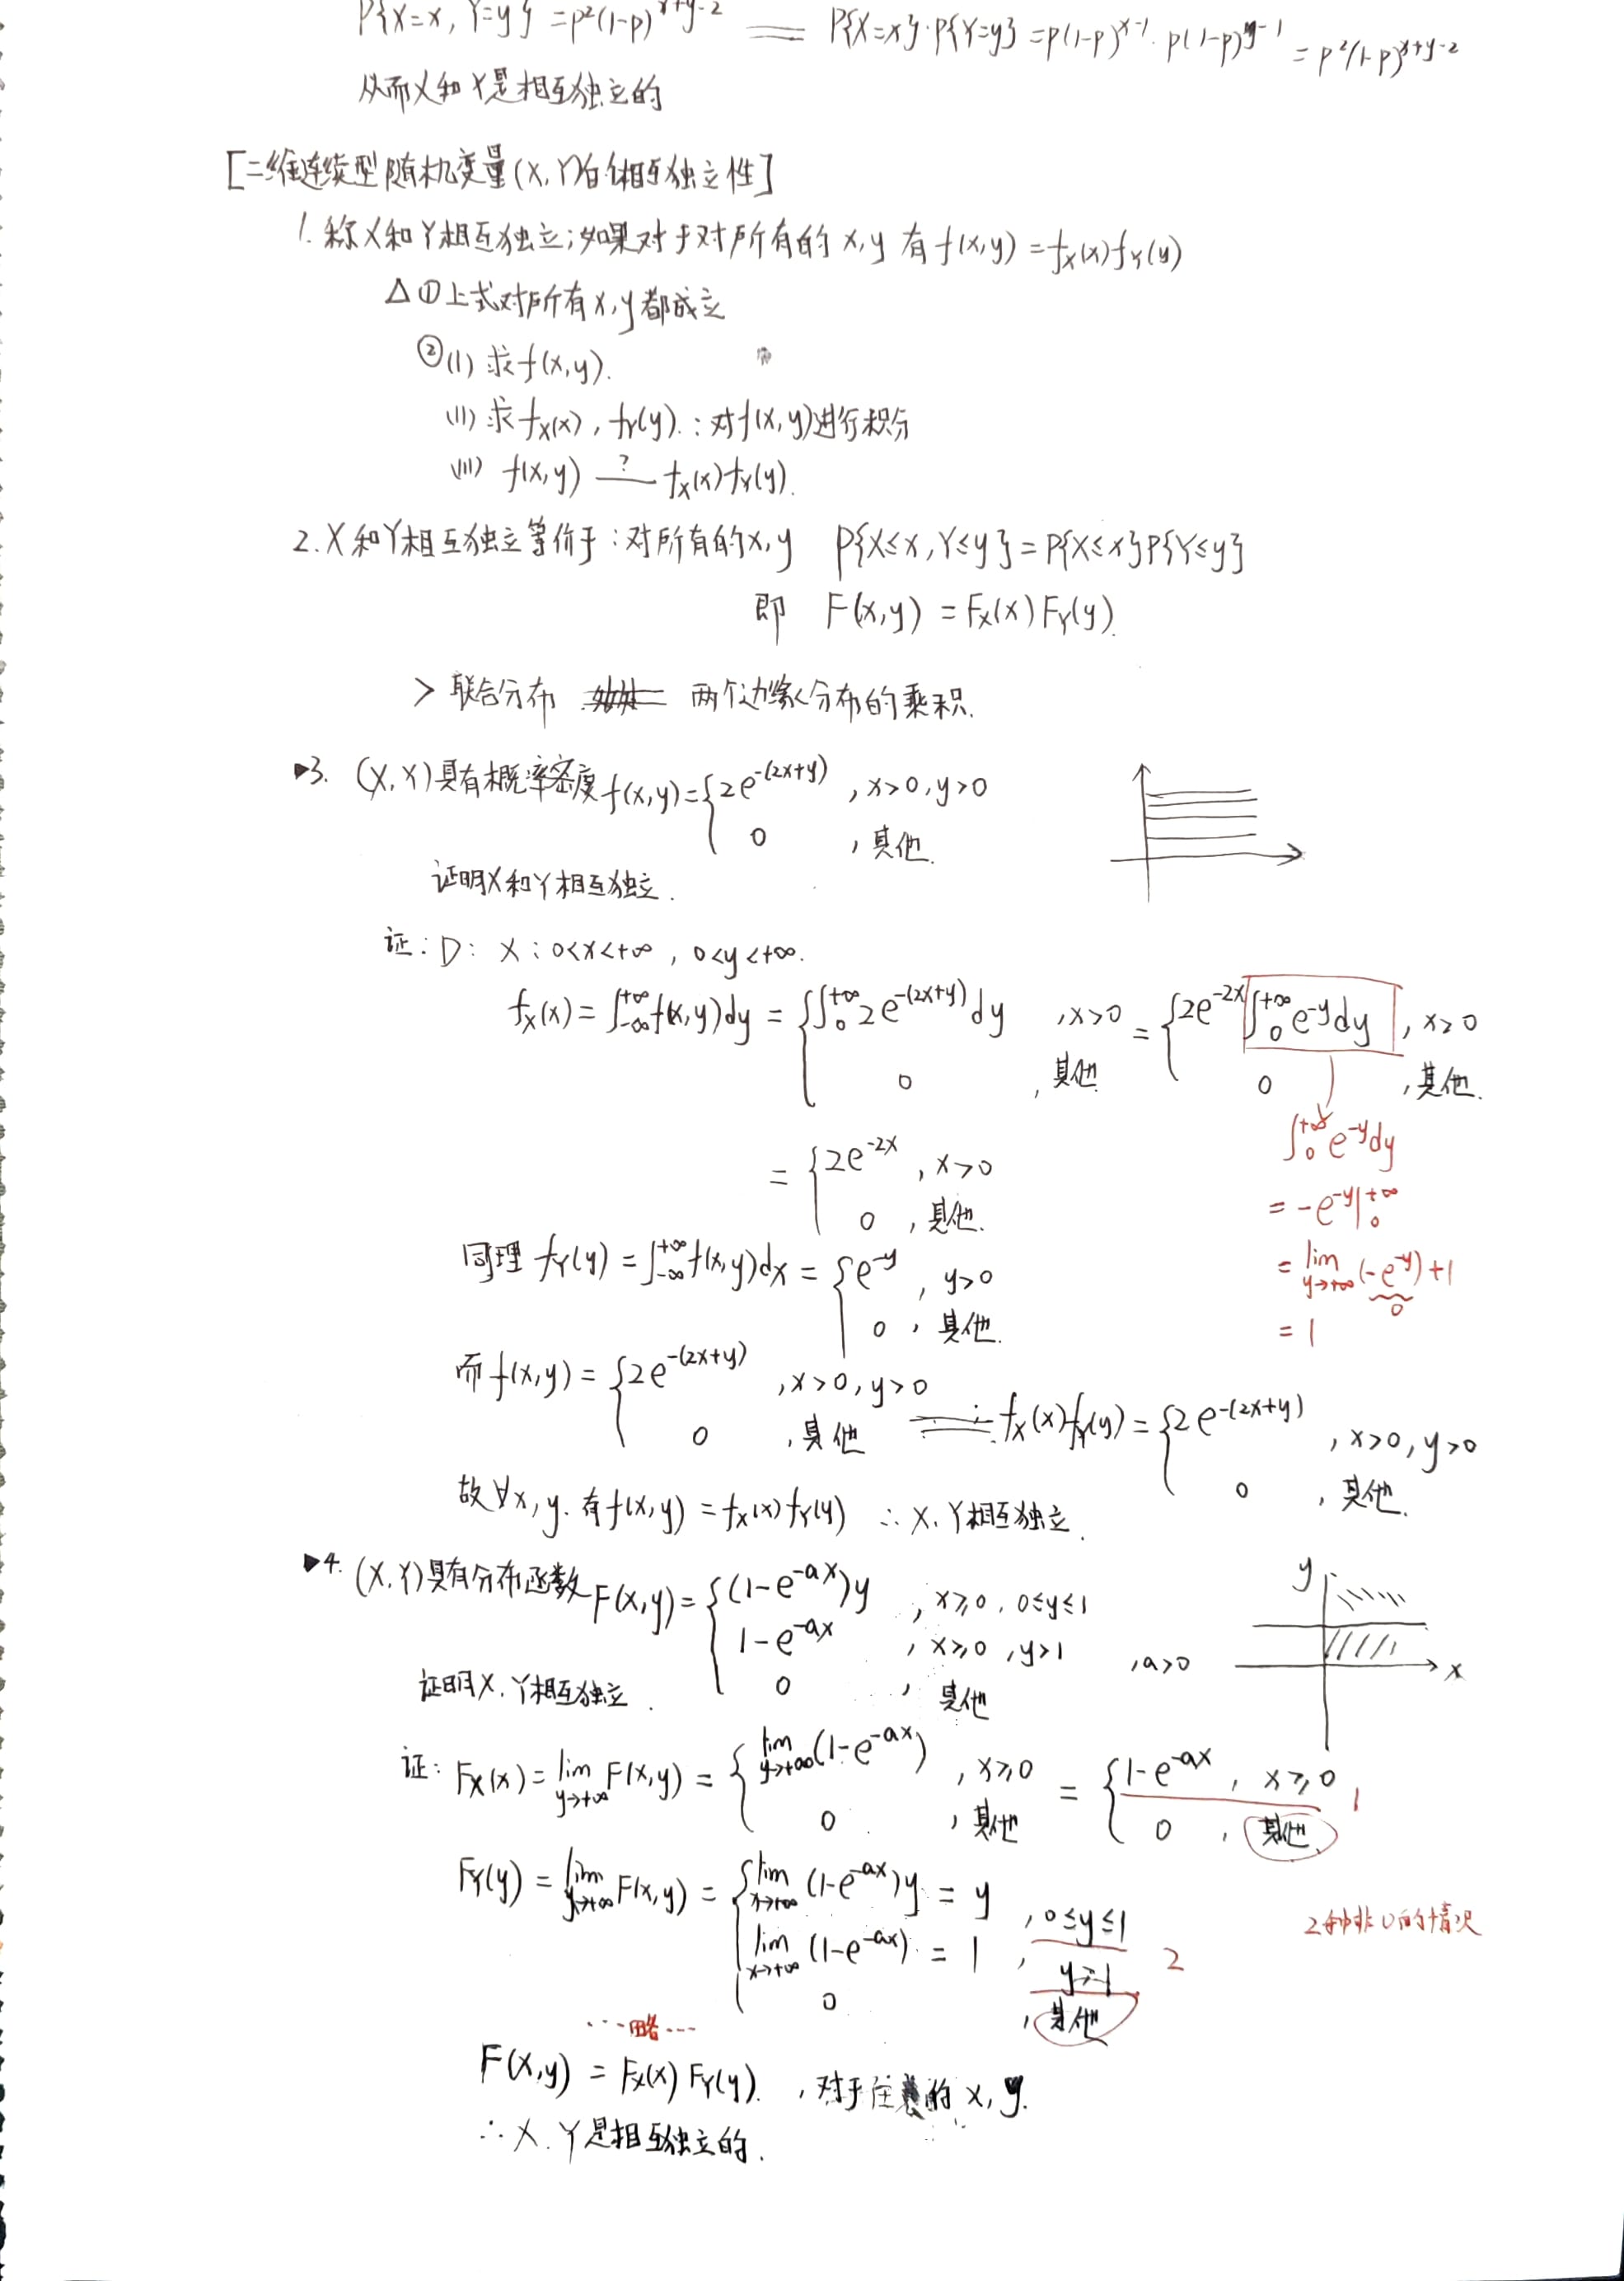 P{X=x, Y=y} =p²(1-p)^{x+y-2} == P{X=x}·P{Y=y} =p(1-p)^{x-1}·p(1-p)^{y-1} = p²(1-p)^{x+y-2}
从而X和Y是相互独立的
[二维连续型随机变量(X,Y)的相互独立性]
1. 称X和Y相互独立;如果对于对所有的x,y 有f(x,y) =f_X(x)f_Y(y)
△①上式对所有x,y都成立
②(I) 求f(x,y).
(II) 求f_X(x), f_Y(y).:对f(x,y)进行积分
(III) f(x,y) =?= f_X(x)f_Y(y).
2.X和Y相互独立等价于:对所有的x,y P{X≤x,Y≤y}=P{X≤x}P{Y≤y}
即 F(x,y) = F_X(x) F_Y(y).
> 联合分布 两个边缘分布的乘积.
▶3. (X,Y)具有概率密度f(x,y)={2e^{-(2x+y)} , x>0,y>0
0 , 其他.
证明X和Y相互独立.
证: D: X:0<x<+∞, 0<y<+∞.
f_X(x)=∫_{-∞}^{+∞}f(x,y)dy = {∫_0^{+∞}2e^{-(2x+y)}dy ,x>0 = {2e^{-2x}∫_0^{+∞}e^{-y}dy , x>0
0 , 其他 0 , 其他.
∫_0^{+∞}e^{-y}dy
= {2e^{-2x} , x>0
0 , 其他.
= -e^{-y}|_0^{+∞}
同理 f_Y(y) =∫_{-∞}^{+∞}f(x,y)dx = {e^{-y} , y>0
0 , 其他.
= lim_{y→+∞}(-e^{-y})+1
0
= 1
而f(x,y) = {2e^{-(2x+y)} ,x>0,y>0
0 , 其他 == f_X(x)f_Y(y)={2e^{-(2x+y)} , x>0, y>0
0 , 其他.
故∀x,y. 有f(x,y) =f_X(x)f_Y(y) ∴X.Y相互独立.
▶4. (X,Y)具有分布函数F(x,y)={(1-e^{-ax})y , x≥0, 0≤y≤1
1-e^{-ax} , x≥0 ,y>1 ,a>0
0 , 其他
y
x
证明X.Y相互独立.
证: F_X(x)=lim_{y→+∞}F(x,y) = {lim_{y→+∞}(1-e^{-ax}) ,x≥0 = {1-e^{-ax} , x≥0 1
0 , 其他 0 , 其他
F_Y(y) = lim_{x→+∞}F(x,y) = {lim_{x→+∞}(1-e^{-ax})y = y , 0≤y≤1
2种非0的情况
lim_{x→+∞}(1-e^{-ax}) = 1 , y>1 2
0 , 其他
...略...
F(x,y) = F_X(x) F_Y(y). ,对于任意的x,y.
∴X.Y是相互独立的.